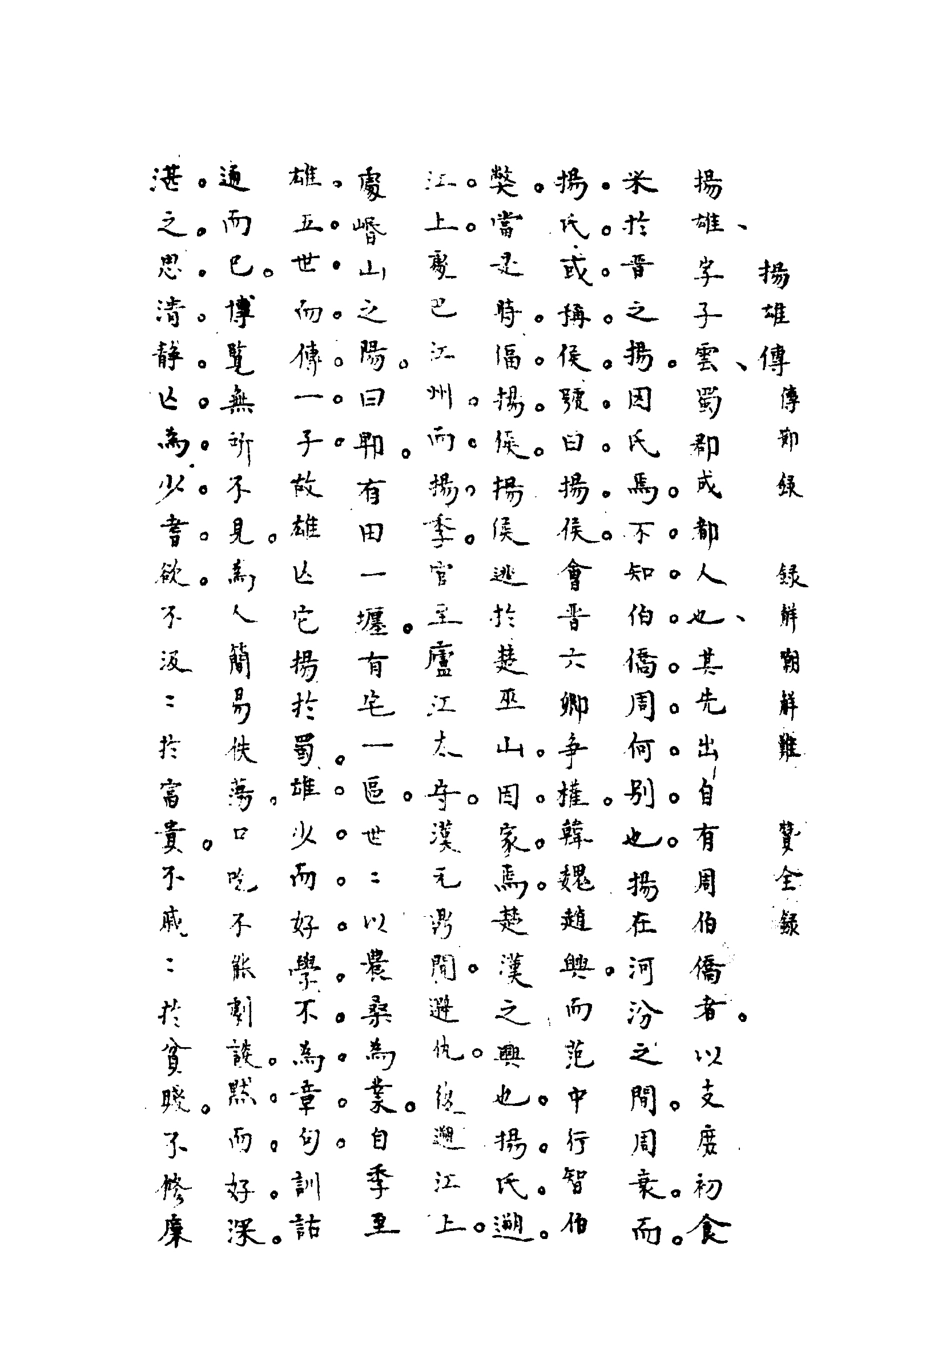 揚雄傳 傳節録 録解嘲解難 贊全録
揚雄字子雲蜀郡成都人也其先出自有周伯僑者以支庶初食
釆於晋之揚因氏焉不知伯僑周何别也揚在河汾之間周衰而
揚氏或稱侯號曰揚侯會晋六卿争權韓魏趙興而范中行智伯
獘當是時偪揚侯揚侯逃於楚巫山因家焉楚漢之興也揚氏遡
江上處巴江州而揚季官至廬江太守漢元鼎間避仇復遡江上
處㟭山之陽曰郫有田一㙻有宅一區世〻以農桑為業自季至
雄五世而傳一子故雄亡它揚於蜀雄少而好學不為章句訓詁
通而已博覧無所不見為人簡易佚蕩口吃不能劇談黙而好深
湛之思清静亡為少耆欲不汲〻於富貴不戚〻於貧賤不修廉